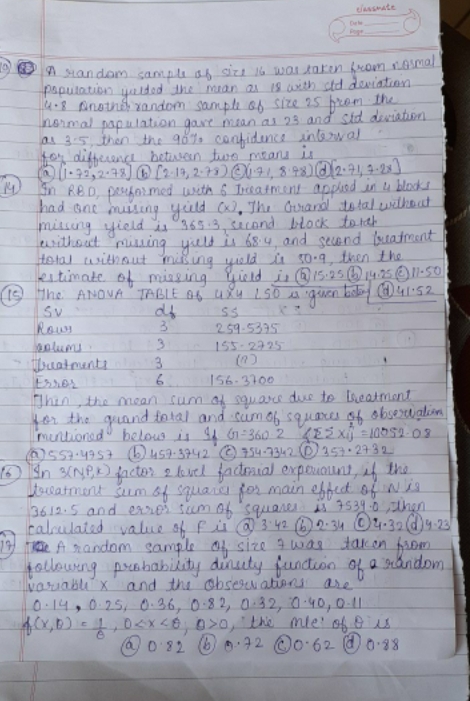 classmate
Date
Page
A random sample of size 16 was taken from normal
population yielded the mean as 18 with std deviation
4.8 another random sample of size 25 from the
normal population gave mean as 23 and std deviation
as 3.5, then the 90% confidence interval
for difference between two means is
(a) [1.72, 2.78] (b) [2.19, 2.78] (c) [1.71, 8.78] (d) [2.71, 7.28]
14) In RBD, performed with 6 treatment applied in 4 blocks
had one missing yield (x). The Grand total without
missing yield is 365.3, second block total
without missing yield is 68.4, and second treatment
total without missing yield is 50.9, then the
estimate of missing yield is (a) 15.25 (b) 14.25 (c) 11.50
(d) 41.52
15) The ANOVA TABLE of 4x4 LSD is given below
SV df SS
Rows 3 259.5375
columns 3 155.2725
Treatments 3 (?)
Error 6 156.3700
Then, the mean sum of square due to treatment
for the grand total and sum of squares of observation
mentioned below is If G=360.2 & ΣΣxij = 10052.08
(a) 557.4757 (b) 457.3742 (c) 754.7342 (d) 257.2732
16) In 3(NPK) factor 2 level factorial experiment, if the
treatment sum of squares for main effect of N is
3612.5 and error sum of squares is 7534.0, then
calculated value of F is (a) 3.42 (b) 2.34 (c) 4.32 (d) 9.23
17) A random sample of size 7 was taken from
following probability density function of a random
variable X and the observations are
0.14, 0.25, 0.36, 0.82, 0.32, 0.40, 0.11
f(x,θ) = 1/θ, 0<x<θ, θ>0, the mle of θ is
(a) 0.82 (b) 0.72 (c) 0.62 (d) 0.88